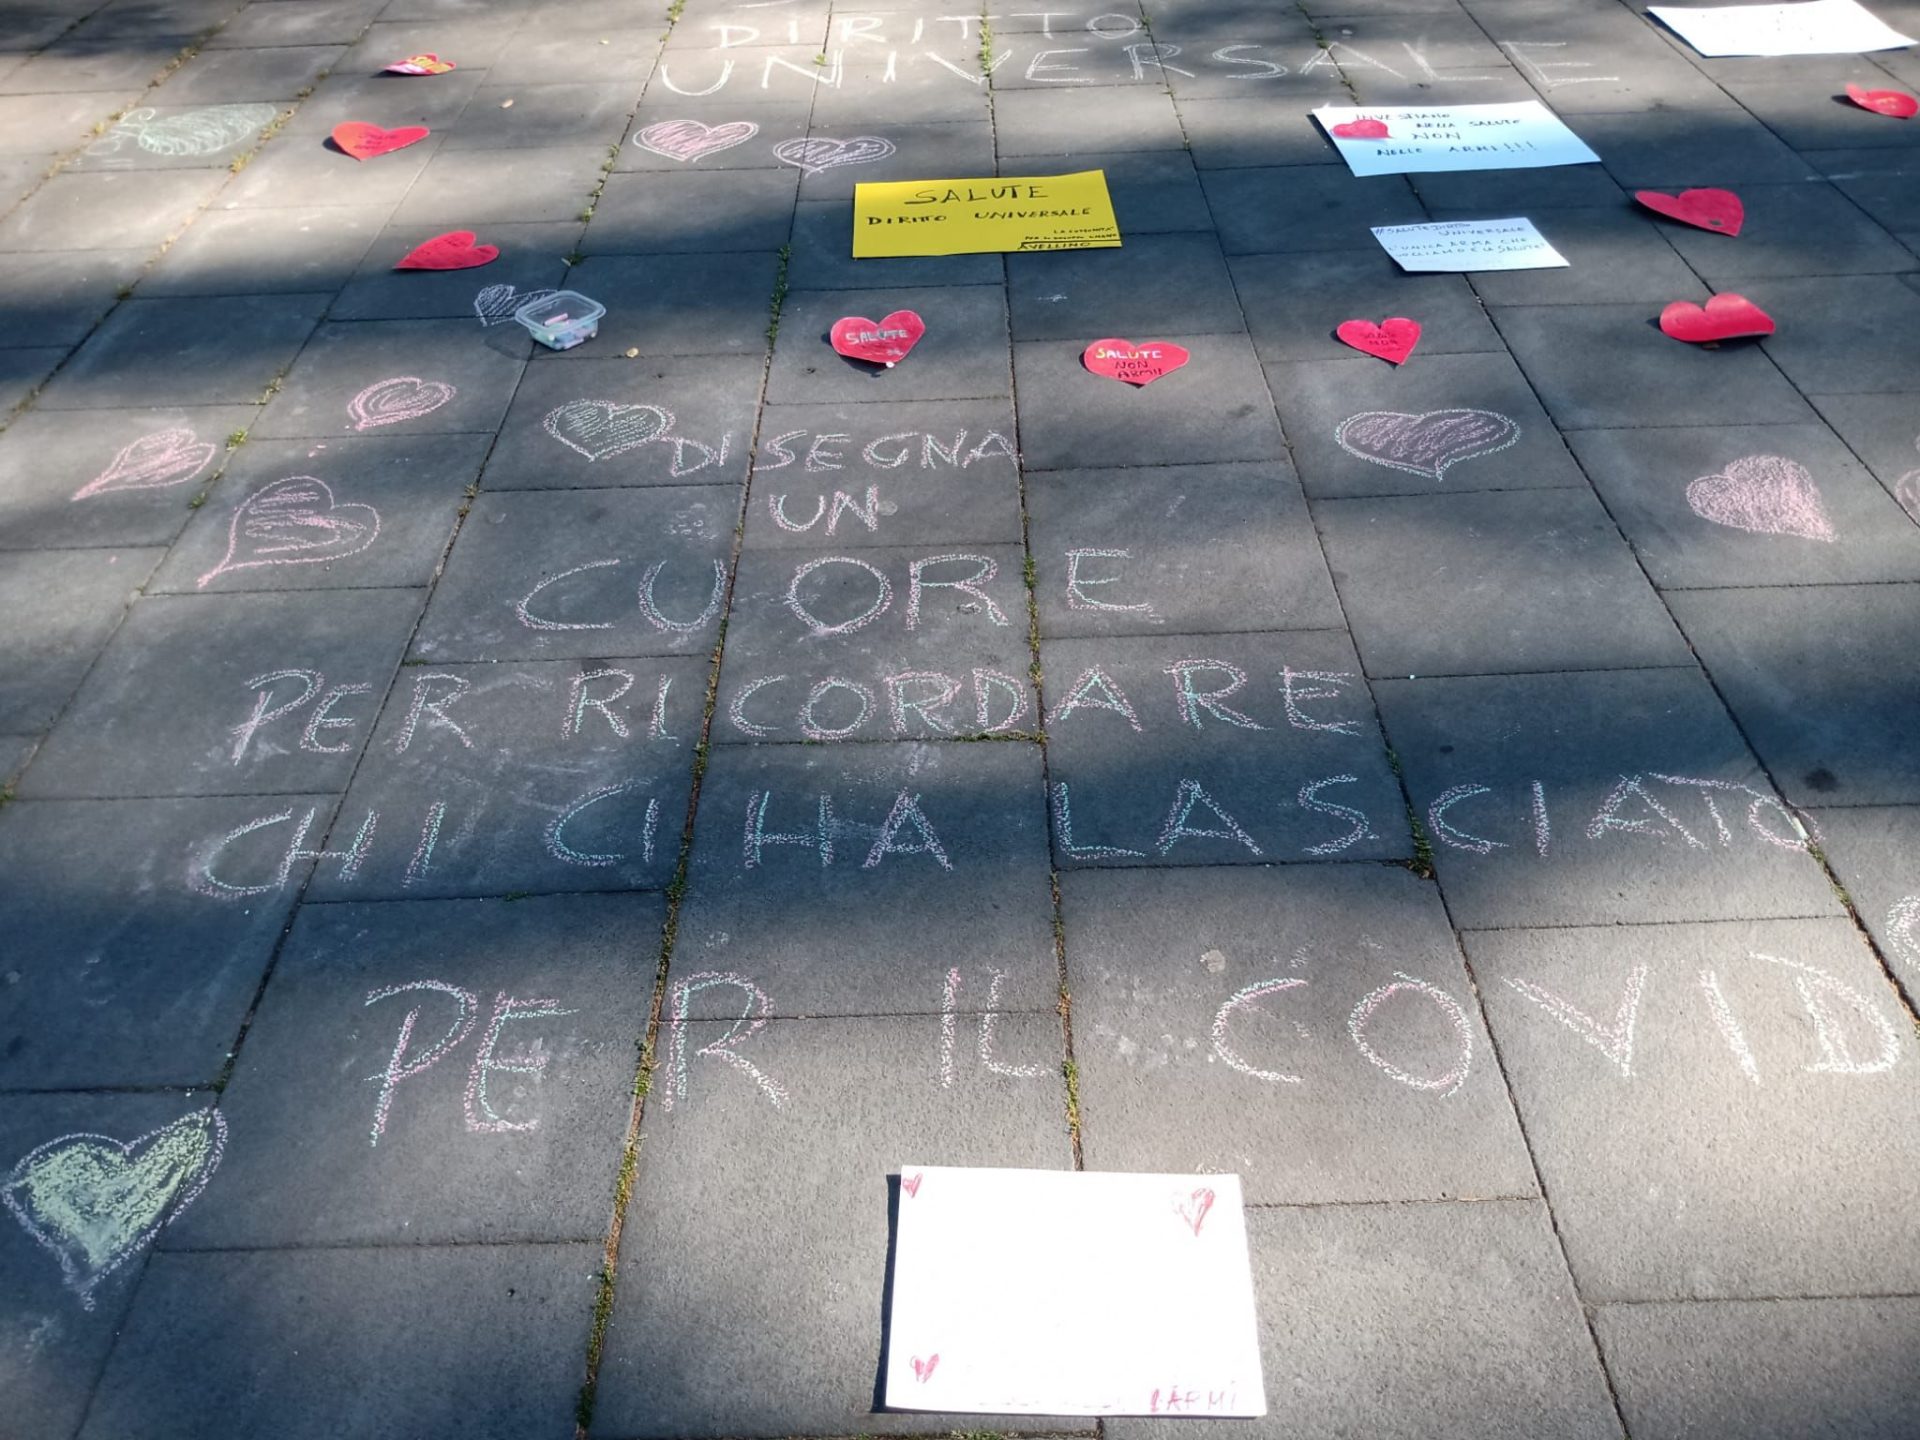 DIRITTO
UNIVERSALE
INVESTIAMO
NELLA SALUTE
NON
NELLE ARMI!!!
SALUTE
DIRITTO UNIVERSALE
LA COMUNITÀ
PER LO SVILUPPO UMANO
AVELLINO
#SALUTEDIRITTO
UNIVERSALE
L'UNICA ARMA CHE
VOGLIAMO È LA SALUTE!
SALUTE
SALUTE
NON
ARMI!
DISEGNA
UN
CUORE
PER RICORDARE
CHI CI HA LASCIATO
PER IL COVID